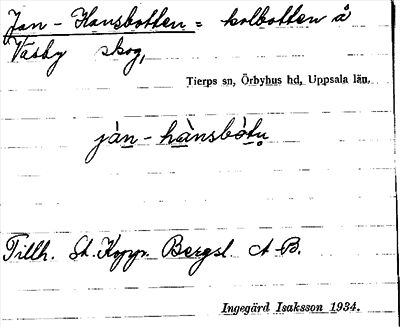 Jan-Hansbotten = kolbotten å
Väsby skog,
Tierps sn, Örbyhus hd, Uppsala län.
jàn-hànsbòtn̥
Tillh. St. Kopp. Bergsl. A-B.
Ingegärd Isaksson 1934.